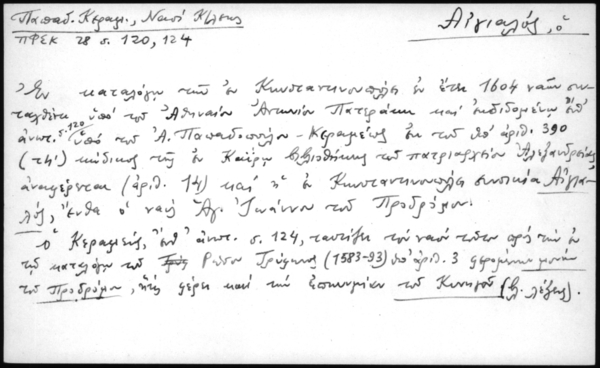 Παπαδ. Κεραμ., Ναοὶ Κ/λεως
Αἰγιαλός, ὁ
ΠΦΣΚ 28 σ. 120, 124
Ἐν καταλόγῳ τῶν ἐν Κωνσταντινουπόλει ἐν ἔτει 1604 ναῶν συν-
ταχθέντι ὑπὸ τοῦ Ἀθηναίου Ἀντωνίου Πατεράκη καὶ ἐκδιδομένῳ ἐνθ'
ἀνωτ. σ. 120 ὑπὸ τοῦ Ἀ. Παπαδοπούλου-Κεραμέως ἐκ τοῦ ὑπ' ἀριθ. 390
κώδικος τῆς ἐν Καΐρῳ βιβλιοθήκης τοῦ πατριαρχείου Ἀλεξανδρείας
ἀναφέρεται (ἀριθ. 14) καὶ ἡ ἐν Κωνσταντινουπόλει συνοικία Αἰγια-
λός, ἔνθα ὁ ναὸς Ἁγ. Ἰωάννου τοῦ Προδρόμου.
Ὁ Κεραμεύς, ἐνθ' ἀνωτ. σ. 124, ταυτίζει τὸν ναὸν τοῦτον πρὸς τὴν ἐν
τῷ καταλόγῳ τοῦ Ρώσου Τρύφωνος (1583-93) ὑπ' ἀριθ. 3 φερομένην μονὴν
τοῦ Προδρόμου, ἥτις φέρει καὶ τὴν ἐπωνυμίαν τοῦ Κυνηγοῦ (βλ. λέξιν).